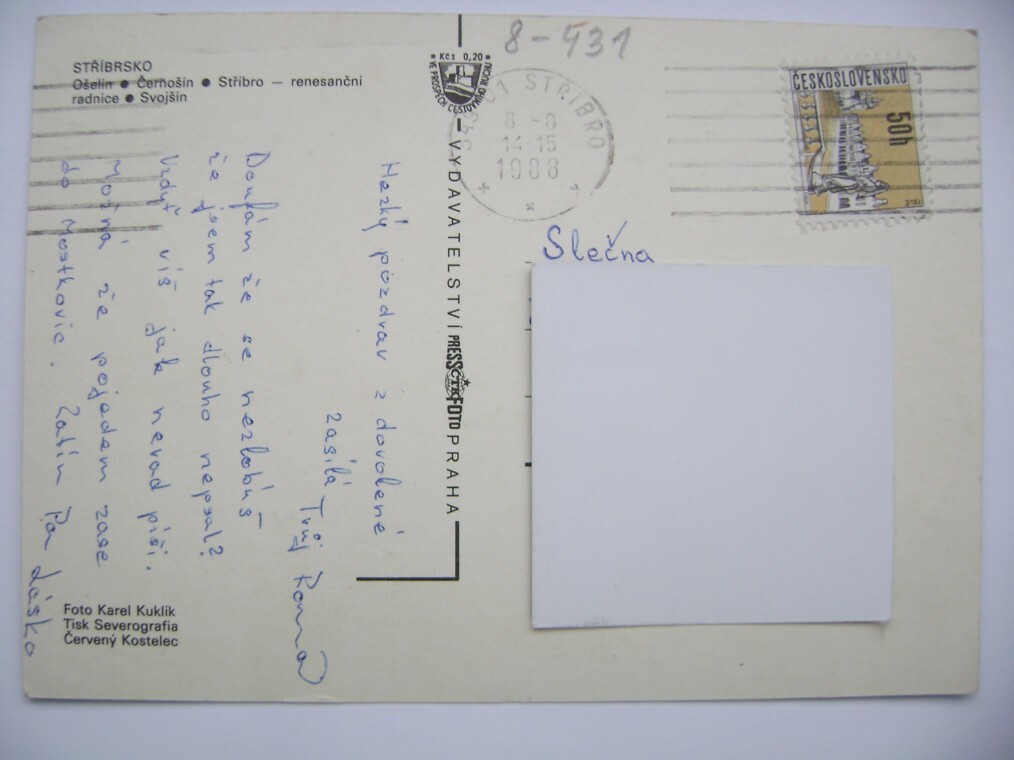 8-431
STŘÍBRSKO
Ošelín ● Černošín ● Stříbro — renesanční
radnice ● Svojšín
Kčs 0,20
VE PROSPĚCH CESTOVNÍHO RUCHU
349 01 STŘÍBRO
8 -8
14-15
1988
ČESKOSLOVENSKO
50h
VYDAVATELSTVÍ PRESSFOTO PRAHA
ČTK
Hezký pozdrav z dovolené
zasílá
Tvůj Roman
Doufám že se nezlobíš
že jsem tak dlouho nepsal?
Vždyť víš jak nerad píši.
Možná že pojedem zase
do Mostkovic. Zatím Pa Lásko
Slečna
Foto Karel Kuklík
Tisk Severografia
Červený Kostelec